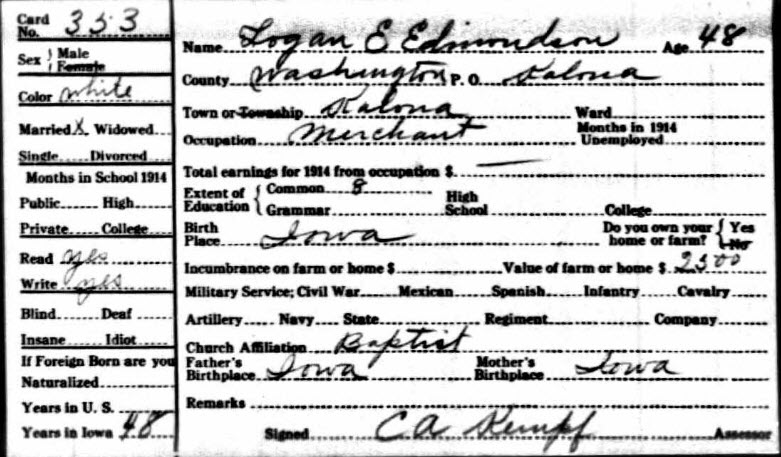 Card No. 353
Sex } Male
Female
Color White
Married X Widowed
Single Divorced
Months in School 1914
Public High
Private College
Read yes
Write yes
Blind Deaf
Insane Idiot
If Foreign Born are you
Naturalized
Years in U. S.
Years in Iowa 48
Name Logan E Edmondson Age 48
County Washington P. O. Kalona
Town or Township Kalona Ward
Occupation Merchant Months in 1914 Unemployed
Total earnings for 1914 from occupation $ —
Extent of Education { Common 8
Grammar High School College
Birth Place Iowa Do you own your home or farm? { Yes
No
Incumbrance on farm or home $ Value of farm or home $ 2500
Military Service; Civil War Mexican Spanish Infantry Cavalry
Artillery Navy State Regiment Company
Church Affiliation Baptist
Father's Birthplace Iowa Mother's Birthplace Iowa
Remarks
Signed C A Kempf Assessor